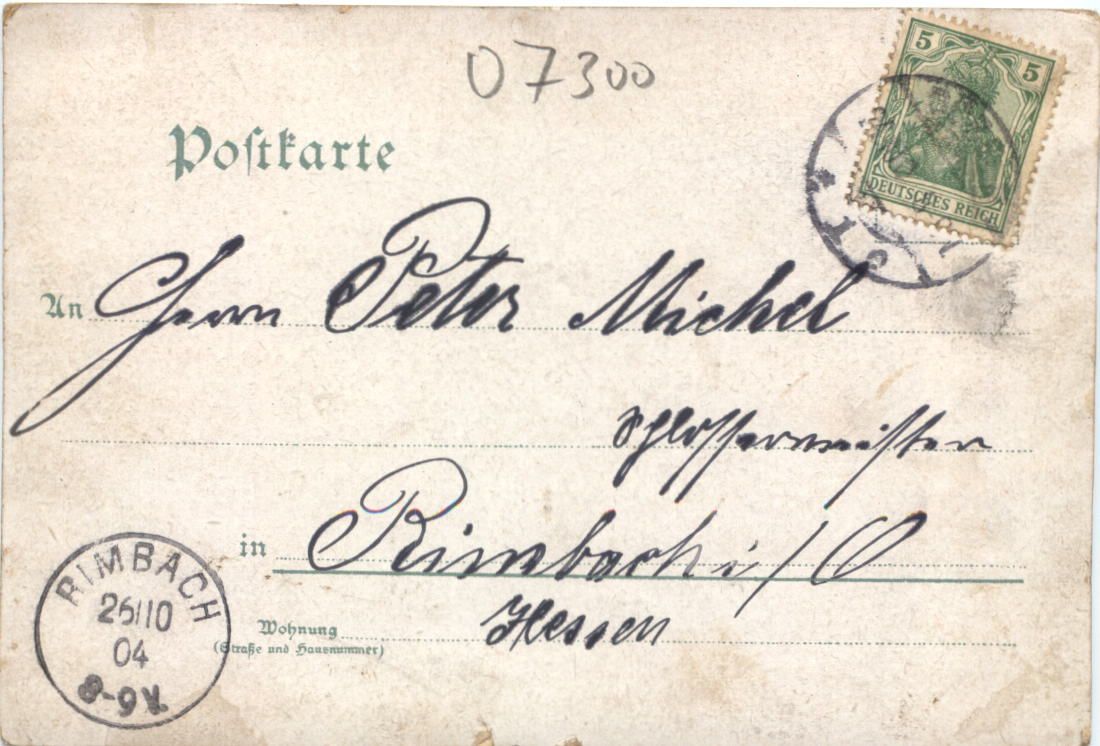 07300
5 5
DEUTSCHES REICH
Poſtkarte
An Herrn Peter Michel
Schlossermeister
in Rimbach i/O
Hessen
Wohnung
(Straße und Hausnummer)
RIMBACH
26/10
04
8-9V.